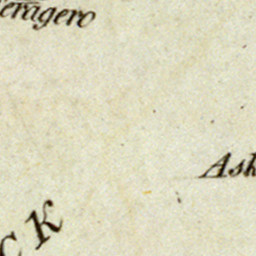 eragero
Ask
CK